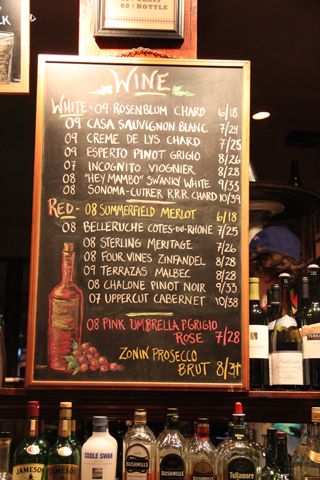 GLASS
60/BOTTLE
WINE
WHITE- 09 ROSENBLUM CHARD 6/18
09 CASA SAUVIGNON BLANC 7/24
09 CREME DE LYS CHARD 7/25
09 ESPERTO PINOT GRIGIO 8/26
07 INCOGNITO VIOGNIER 8/28
08 "HEY MAMBO" SWANKY WHITE 9/33
08 SONOMA-CUTRER RRR CHARD 10/39
RED- 08 SUMMERFIELD MERLOT 6/18
08 BELLERUCHE COTES-DU-RHONE 7/25
08 STERLING MERITAGE 7/26
08 FOUR VINES ZINFANDEL 8/28
09 TERRAZAS MALBEC 8/28
08 CHALONE PINOT NOIR 9/33
07 UPPERCUT CABERNET 10/38
08 PINK UMBRELLA P.GRIGIO
ROSE 7/28
ZONIN PROSECCO
BRUT 8/31
JAMESON
JAMESON
COOLE SWAN
BUSHMILLS
BUSHMILLS
Tullamore